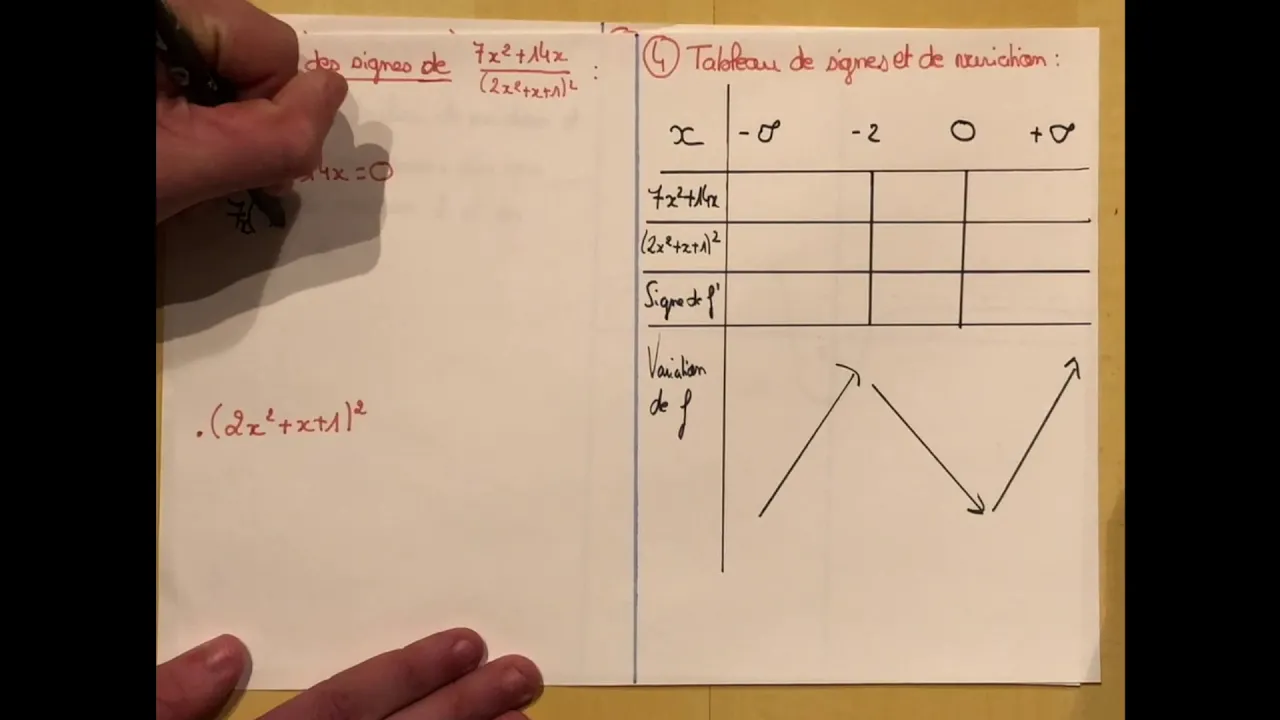 des signes de (7x²+14x)/(2x²+x+1)² :
14x = 0
7x(
.(2x²+x+1)²
④ Tableau de signes et de variation :
x -∞ -2 0 +∞
7x²+14x
(2x²+x+1)²
Signe de f'
Variation
de f